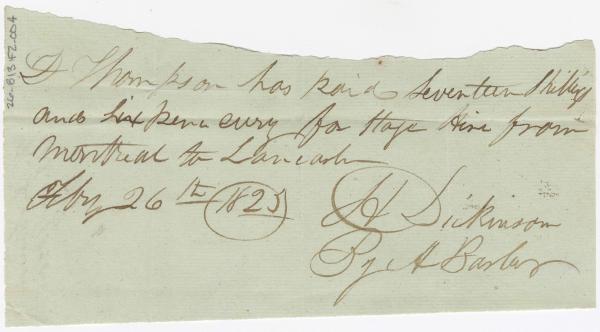 D Thompson has paid Seventeen Shillings
and six pence cury for Stage Hire from
Montreal to Lancaster
Feby 26th 1825
H Dickinson
By A Barber
26-813 F2-004